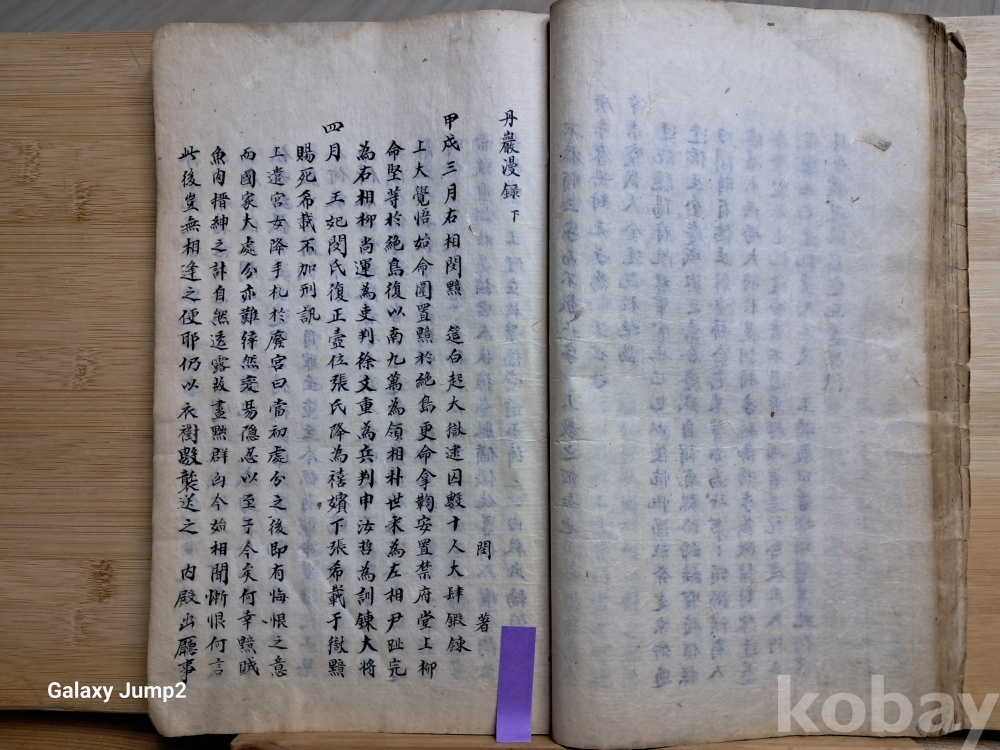 丹巖漫録 下
閔 著
甲戌三月右相閔黯 筵白起大獄逮囚數十人大肆鍛鍊
上大覺悟始命圍置黯於絶島更命拿鞫安置禁府堂上柳
命堅等於絶島復以南九萬為領相朴世采為左相尹趾完
為右相柳尚運為吏判徐文重為兵判申汝哲為訓鍊大將
四月 王妃閔氏復正壼位張氏降為禧嬪下張希載于獄黯
賜死希載不加刑訊
上遣宮女降手札於廢宮曰當初處分之後即有悔恨之意
而國家大處分亦難猝然変易隐忍以至于今矣何幸黯賊
魚肉搢紳之計自然透露故盡黙群凶今始相聞慚恨何言
此後豈無相逢之便耶仍以衣襨數襲送之 內殿出廳事
Galaxy Jump2
kobay